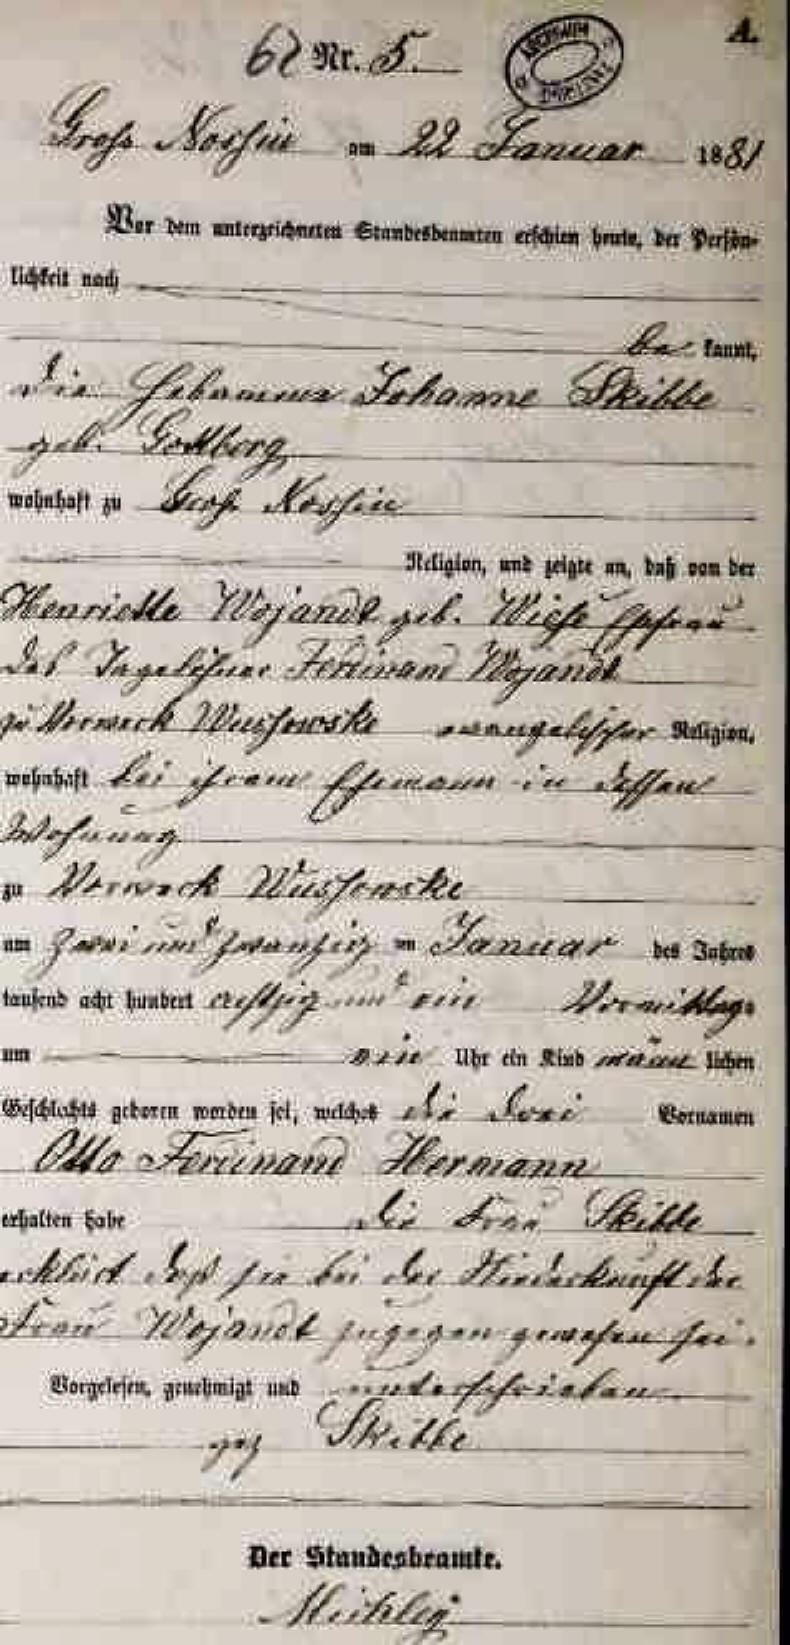 A.
62 Nr. 5.
Gross Nossin am 22 Januar 1881
Vor dem unterzeichneten Standesbeamten erschien heute, der Persön-
lichkeit nach
be kannt,
die Hebamme Johanne Skibbe
geb.
wohnhaft zu Gross Nossin
Religion, und zeigte an, daß von der
Henriette Wojandt geb. Wiese Ehefrau
des Tagelöhner Ferdinand Wojandt
zu Vorwerk Wussowske evangelischer Religion,
wohnhaft bei ihrem Ehemann in dessen
Wohnung
zu Vorwerk Wussowske
am zwei und zwanzig ten Januar des Jahres
tausend acht hundert achtzig und ein Vormittags
um ein Uhr ein Kind männ lichen
Geschlechts geboren worden sei, welches die drei Vornamen
Otto Ferdinand Hermann
erhalten habe die Frau Skibbe
erklärt daß sie bei der Niederkunft der
Frau Wojandt zugegen gewesen sei.
Vorgelesen, genehmigt und unterschrieben
gez Skibbe
Der Standesbeamte.